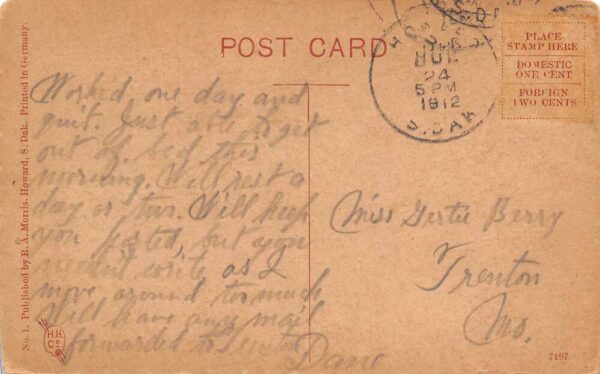 POST CARD
HOWARD
JUL
24
5 PM
1912
S.DAK
PLACE
STAMP HERE
DOMESTIC
ONE CENT
FOREIGN
TWO CENTS
No. 1. Published by E. A. Morris, Howard, S. Dak. Printed in Germany
Worked one day and
quit. Just able to get
out of bed this
morning. Will rest a
day or two. Will keep
you posted, but you
needn't write as I
move around too much
Will have any mail
forwarded to
Dave
Miss Gertie Berry
Trenton
Mo.
H.H.
Co
7197